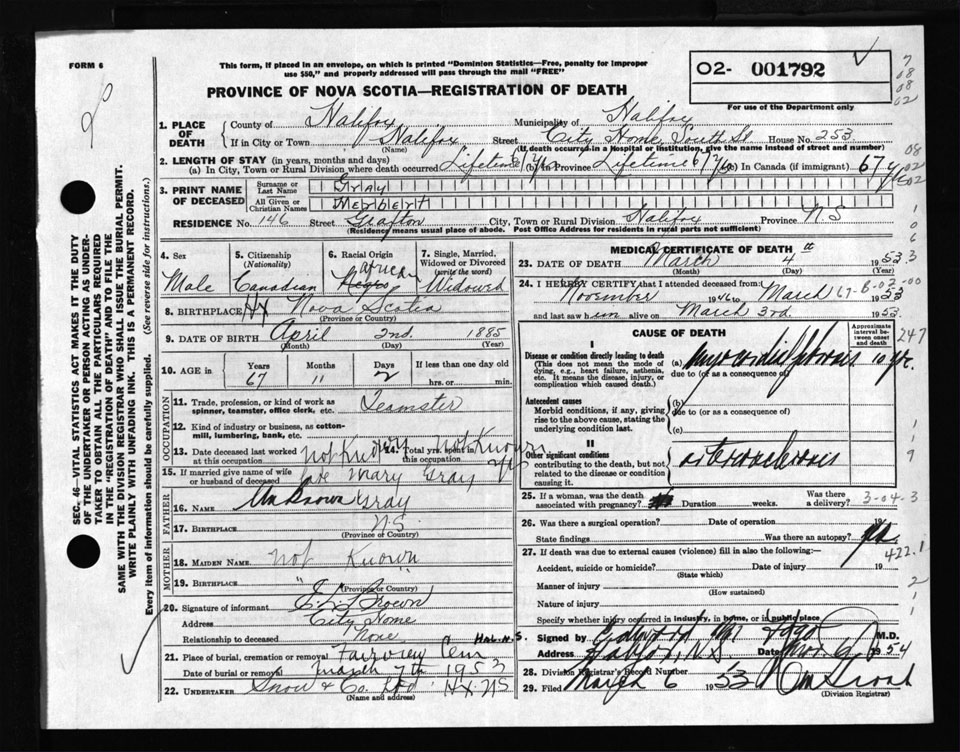 FORM 6
This form, if placed in an envelope, on which is printed "Dominion Statistics—Free, penalty for improper
use $50," and properly addressed will pass through the mail "FREE"
PROVINCE OF NOVA SCOTIA—REGISTRATION OF DEATH
02- 001792
For use of the Department only
7
08
08
02
1. PLACE OF DEATH
County of Halifax Municipality of Halifax
If in City or Town Halifax (Name) Street City Home, South St House No. 253
(If death occurred in a Hospital or Institution, give the name instead of street and number)
2. LENGTH OF STAY (in years, months and days)
(a) In City, Town or Rural Division where death occurred Lifetime (b) In Province Lifetime 67 (c) In Canada (if immigrant) 67
3. PRINT NAME OF DECEASED
Surname or Last Name Gray
All Given or Christian Names Herbert
RESIDENCE No. 146 Street Grafton City, Town or Rural Division Halifax Province N S
(Residence means usual place of abode. Post Office Address for residents in rural parts not sufficient)
4. Sex Male
5. Citizenship (Nationality) Canadian
6. Racial Origin African
7. Single, Married, Widowed or Divorced (write the word) Widowed
8. BIRTHPLACE Hx Nova Scotia
(Province or Country)
9. DATE OF BIRTH April 2nd 1885
(Month) (Day) (Year)
10. AGE in Years 67 Months 11 Days 2 If less than one day hrs. or min.
OCCUPATION
11. Trade, profession, or kind of work as spinner, teamster, office clerk, etc. Teamster
12. Kind of industry or business, as cotton-mill, lumbering, bank, etc.
13. Date deceased last worked at this occupation not Known
14. Total yrs. spent in this occupation not Known
15. If married give name of wife or husband of deceased late Mary Gray
FATHER
16. Name Unknown Gray
17. Birthplace N.S.
(Province or Country)
MOTHER
18. Maiden Name not Known
19. Birthplace " "
(Province or Country)
20. Signature of informant Brown
Address City Home
Relationship to deceased None
21. Place of burial, cremation or removal Fairview Cem HAL.N.S.
Date of burial or removal March 7th 1953
22. UNDERTAKER Snow & Co. Ltd Hx NS
(Name and address)
MEDICAL CERTIFICATE OF DEATH
23. DATE OF DEATH March 4th 1953
(Month) (Day) (Year)
24. I HEREBY CERTIFY that I attended deceased from:
November 1946 to March 1953
67-B-02-00
and last saw him alive on March 3rd 1953
CAUSE OF DEATH
Approximate interval between onset and death
247
I
Disease or condition directly leading to death
(This does not mean the mode of dying, e.g., heart failure, asthenia, etc. It means the disease, injury, or complication which caused death.)
(a) myocardial fibrosis 10 yrs.
due to (or as a consequence of)
Antecedent causes
Morbid conditions, if any, giving rise to the above cause, stating the underlying condition last.
(b)
due to (or as a consequence of)
(c)
II
Other significant conditions
contributing to the death, but not related to the disease or condition causing it.
arteriosclerosis
25. If a woman, was the death associated with pregnancy? Duration weeks. Was there a delivery?
3-04-3
26. Was there a surgical operation? Date of operation 19
State findings Was there an autopsy?
422.1
27. If death was due to external causes (violence) fill in also the following:—
Accident, suicide or homicide? Date of injury 19
(State which)
Manner of injury
(How sustained)
Nature of injury
Specify whether injury occurred in industry, in home, or in public place
Signed by M.D.
Address Halifax, N.S. Date 1954
28. Division Registrar's Record Number
29. Filed March 6 1953
(Division Registrar)
SEC. 46—VITAL STATISTICS ACT MAKES IT THE DUTY
OF THE UNDERTAKER OR PERSON ACTING AS UNDERTAKER TO OBTAIN ALL THE PARTICULARS REQUIRED
IN THE "REGISTRATION OF DEATH" AND TO FILE THE
SAME WITH THE DIVISION REGISTRAR WHO SHALL ISSUE THE BURIAL PERMIT.
WRITE PLAINLY WITH UNFADING INK. THIS IS A PERMANENT RECORD.
Every item of information should be carefully supplied. (See reverse side for instructions.)